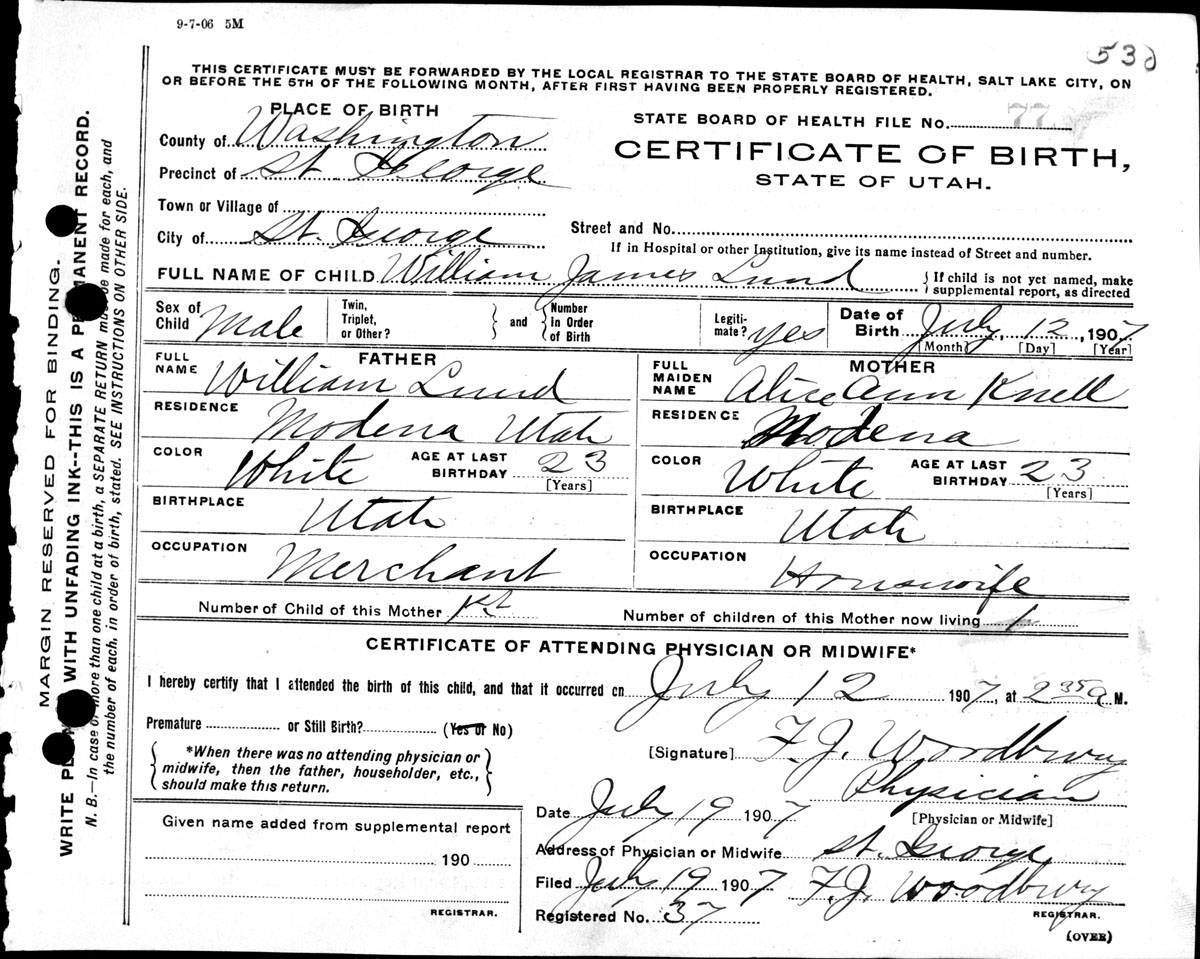 9-7-06 5M
THIS CERTIFICATE MUST BE FORWARDED BY THE LOCAL REGISTRAR TO THE STATE BOARD OF HEALTH, SALT LAKE CITY, ON
OR BEFORE THE 5TH OF THE FOLLOWING MONTH, AFTER FIRST HAVING BEEN PROPERLY REGISTERED.
PLACE OF BIRTH
County of Washington
Precinct of St. George
Town or Village of
City of St. George
STATE BOARD OF HEALTH FILE No. 77
CERTIFICATE OF BIRTH,
STATE OF UTAH.
Street and No.
If in Hospital or other Institution, give its name instead of Street and number.
FULL NAME OF CHILD William James Lund
If child is not yet named, make
supplemental report, as directed
Sex of Child Male
Twin, Triplet, or Other?
and
Number In Order of Birth
Legiti-mate? yes
Date of Birth July 12, 1907
[Month] [Day] [Year]
FATHER
FULL NAME William Lund
RESIDENCE Modena Utah
COLOR White AGE AT LAST BIRTHDAY 23
[Years]
BIRTHPLACE Utah
OCCUPATION Merchant
MOTHER
FULL MAIDEN NAME Alice Ann Knell
RESIDENCE Modena
COLOR White AGE AT LAST BIRTHDAY 23
[Years]
BIRTHPLACE Utah
OCCUPATION Housewife
Number of Child of this Mother 1st Number of children of this Mother now living 1
CERTIFICATE OF ATTENDING PHYSICIAN OR MIDWIFE*
I hereby certify that I attended the birth of this child, and that it occurred on July 12 1907, at 2 35 a M.
Premature or Still Birth? (Yes or No)
*When there was no attending physician or
midwife, then the father, householder, etc.,
should make this return.
[Signature] F. J. Woodbury
Physician
[Physician or Midwife]
Date July 19 1907
Address of Physician or Midwife St. George
Filed July 19 1907 F. J. Woodbury
Registered No. 37 REGISTRAR.
(OVER)
Given name added from supplemental report
190
REGISTRAR.
MARGIN RESERVED FOR BINDING.
WRITE WITH UNFADING INK--THIS IS A PERMANENT RECORD.
N. B.—In case of more than one child at a birth, a SEPARATE RETURN must be made for each, and
the number of each, in order of birth, stated. SEE INSTRUCTIONS ON OTHER SIDE.